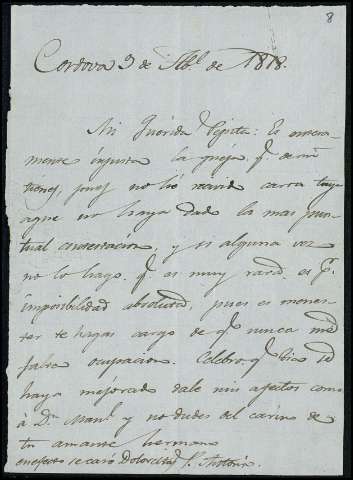 8
Cordova 3 de Abl de 1818.
Mi Querida Pepita: Es entera-
mente injusta la queja q.e de mi
tienes, pues no hé recivido carta tuya
aque no haya dado la mas pun-
tual contestacion, y si alguna vez
no lo hago. q.e es muy raro. es p.r
imposibilidad absoluta, pues es menes-
ter te hagas cargo de q.e nunca me
falta ocupacion. Celebro q.e Dia se
haya mejorado dale mis afectos como
à D.n Man.l y no dudes del cariño de
tu amante hermano
enefecto se casó Dolorcitas P. Antonio.